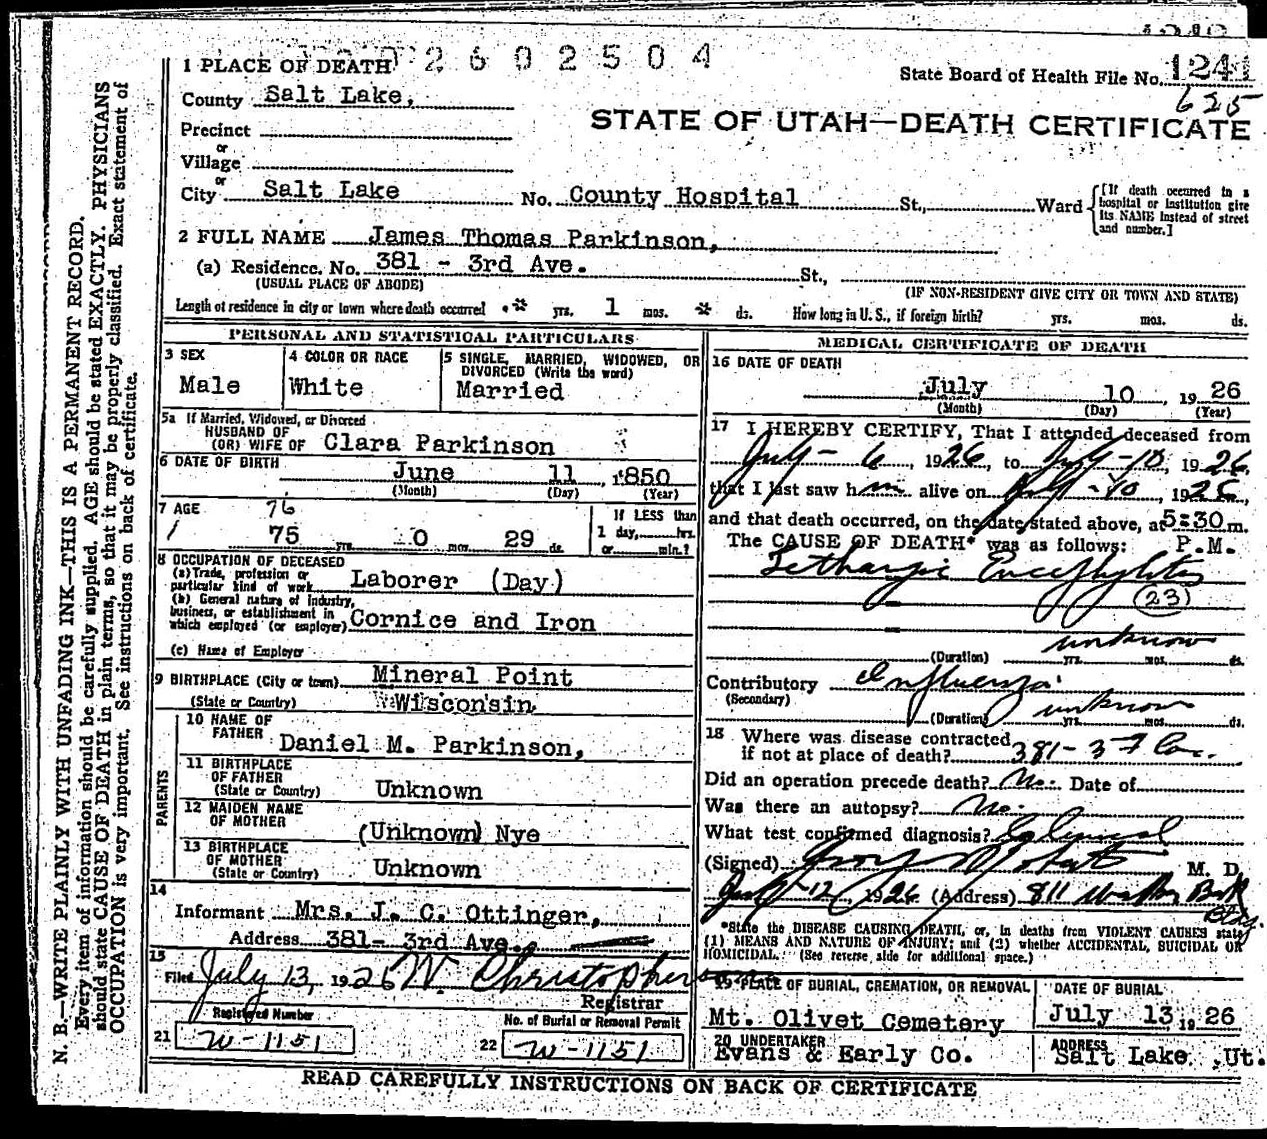 2602504
1 PLACE OF DEATH
State Board of Health File No. 1241
625
County Salt Lake,
STATE OF UTAH—DEATH CERTIFICATE
Precinct
or
Village
or
City Salt Lake No. County Hospital St., Ward
[If death occurred in a
hospital or institution give
its NAME instead of street
and number.]
2 FULL NAME James Thomas Parkinson,
(a) Residence. No. 381 - 3rd Ave. St.,
(USUAL PLACE OF ABODE) (IF NON-RESIDENT GIVE CITY OR TOWN AND STATE)
Length of residence in city or town where death occurred * yrs. 1 mos. * ds. How long in U. S., if foreign birth? yrs. mos. ds.
PERSONAL AND STATISTICAL PARTICULARS
3 SEX
Male
4 COLOR OR RACE
White
5 SINGLE, MARRIED, WIDOWED, OR
DIVORCED (Write the word)
Married
5a If Married, Widowed, or Divorced
HUSBAND OF
(OR) WIFE OF Clara Parkinson
6 DATE OF BIRTH June 11, 1850
(Month) (Day) (Year)
7 AGE 76
75 yrs. 0 mos. 29 ds.
If LESS than
1 day, hrs.
or min.?
8 OCCUPATION OF DECEASED
(a) Trade, profession or
particular kind of work Laborer (Day)
(b) General nature of Industry,
business, or establishment in
which employed (or employer) Cornice and Iron
(c) Name of Employer
9 BIRTHPLACE (City or town) Mineral Point
(State or Country) Wisconsin
PARENTS
10 NAME OF
FATHER Daniel M. Parkinson,
11 BIRTHPLACE
OF FATHER
(State or Country) Unknown
12 MAIDEN NAME
OF MOTHER (Unknown) Nye
13 BIRTHPLACE
OF MOTHER
(State or Country) Unknown
14
Informant Mrs. J. C. Ottinger,
Address 381- 3rd Ave.,
15
Filed July 13, 1925 W. Christopherson
Registrar
Registered Number
21 W-1151
No. of Burial or Removal Permit
22 W-1151
MEDICAL CERTIFICATE OF DEATH
16 DATE OF DEATH
July 10, 1926
(Month) (Day) (Year)
17 I HEREBY CERTIFY, That I attended deceased from
July - 6, 1926, to July - 10, 1926,
that I last saw him alive on July - 10, 1926,
and that death occurred, on the date stated above, at 5:30 m.
The CAUSE OF DEATH* was as follows: P.M.
Lethargic Encephylitis
(23)
unknow
(Duration) yrs. mos. ds.
Contributory Influenza
(Secondary) unknow
(Duration) yrs. mos. ds.
18 Where was disease contracted
if not at place of death? 381-3
Did an operation precede death? No. Date of
Was there an autopsy? No.
What test confirmed diagnosis?
(Signed) M. D.
July - 12, 1926 (Address) 811
*State the DISEASE CAUSING DEATH, or, in deaths from VIOLENT CAUSES state
(1) MEANS AND NATURE OF INJURY; and (2) whether ACCIDENTAL, SUICIDAL OR
HOMICIDAL. (See reverse side for additional space.)
19 PLACE OF BURIAL, CREMATION, OR REMOVAL
Mt. Olivet Cemetery
DATE OF BURIAL
July 13 1926
20 UNDERTAKER
Evans & Early Co.
ADDRESS
Salt Lake, Ut.
READ CAREFULLY INSTRUCTIONS ON BACK OF CERTIFICATE
N. B.—WRITE PLAINLY WITH UNFADING INK—THIS IS A PERMANENT RECORD.
Every item of information should be carefully supplied. AGE should be stated EXACTLY. PHYSICIANS
should state CAUSE OF DEATH in plain terms, so that it may be properly classified. Exact statement of
OCCUPATION is very important. See instructions on back of certificate.